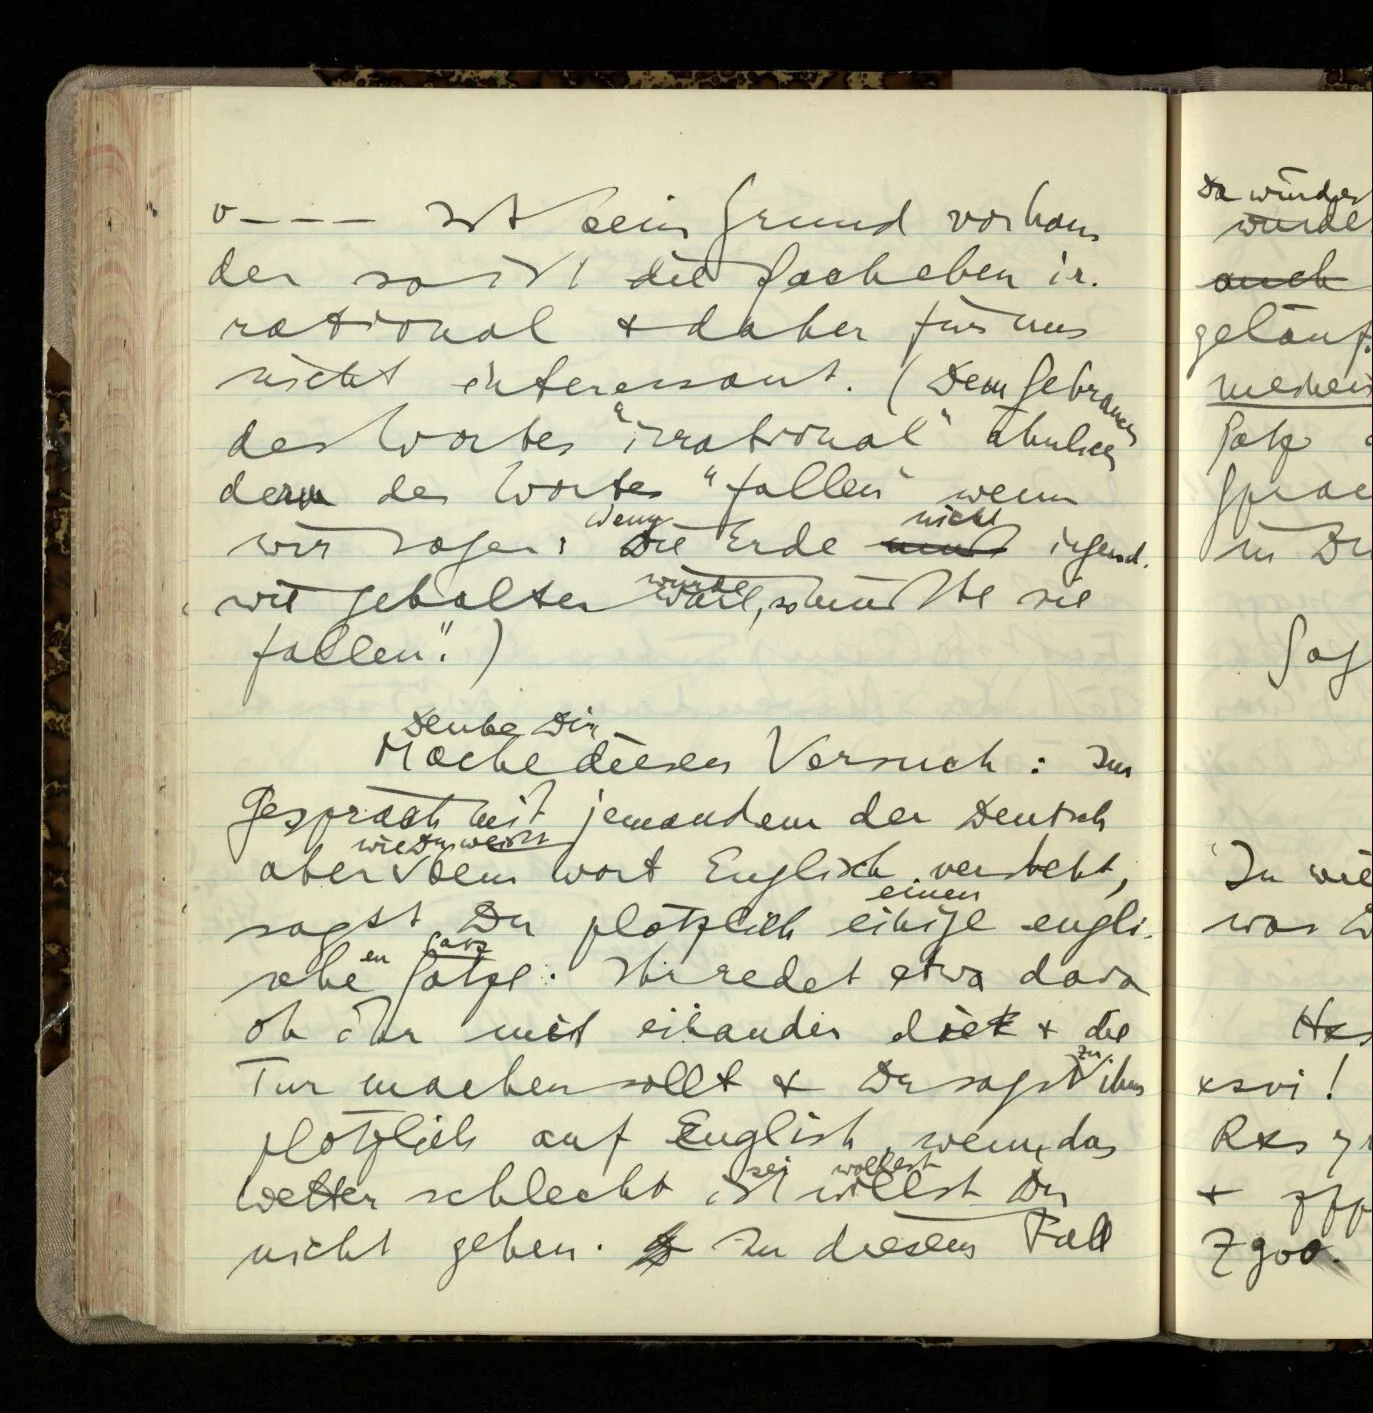 v – – – Ist kein Grund vorhan
den so ist die Sache eben ir-
rational & daher für uns
nicht interessant. (Dem Gebrauch
des Wortes "irrational" ähnlich
dem des Wortes "fallen" wenn
wir sagen: "Wenn Die Erde nicht irgend-
wie gehalten würde wäre, so müßte sie
fallen".)
Denke Dir
Mache diesen Versuch: Im
Gespräch mit jemandem der Deutsch
aber wie Du weißt kein Wort Englisch versteht,
sagst Du plötzlich einen einige engli-
schen Satz Sätze: Ihr redet etwa davon
ob ihr mit einander dies & die
Tur machen sollt & Du sagst zu ihm
plötzlich auf Englisch, wenn das
Wetter schlecht ist sei willst wolltest Du
nicht gehen. In diesem Fall
Da würde
wurde
auch
geläuf
meinen
Satz
Sprac
in De
Sag
In wie
was
xsvi!
Rxs
Zgoo.